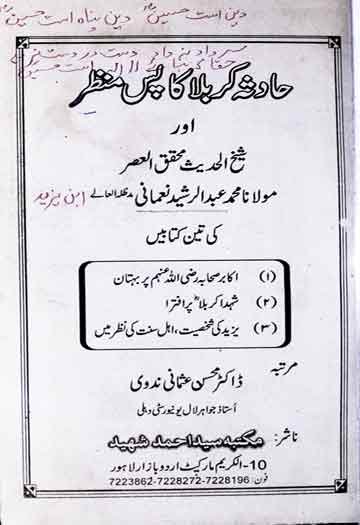 دین است حسینؑ دین پناہ است حسینؑ
سر داد نہ داد دست در دست یزید
حقا کہ بنائے لا الہ است حسینؑ
حادثہ کربلا کا پس منظر
اور
شیخ الحدیث محقق العصر
مولانا محمد عبدالرشید نعمانی مدظلہ العالے
ابن یزید
کی تین کتابیں
(۱) اکابر صحابہ رضی اللہ عنہم پر بہتان
(۲) شہدا کربلا پر افترا
(۳) یزید کی شخصیت، اہل سنت کی نظر میں
مرتبہ
ڈاکٹر محسن عثمانی ندوی
اُستاذ جواہر لال یونیورسٹی دہلی
ناشر: مکتبہ سید احمد شہید
10-الکریم مارکیٹ اردو بازار لاہور
فون: 7228196-7228272-7223862